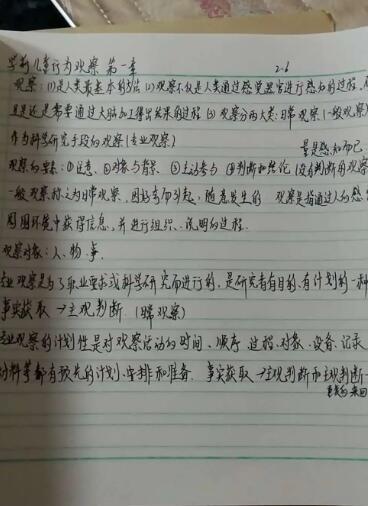 学前儿童行为观察 第一章 2-6
观察:(1)是人类最基本的方法 (2)观察不仅是人类通过感觉器官进行感知的过程,而
且是还是需要通过大脑加工得出结果的过程 (3)观察分两大类:日常观察(一般观察)
作为科学研究手段的观察(专业观察)
算是感知而已
观察的要素:①注意 ②对象与背景 ③主动参与 ④判断和结论(没有判断的观察
一般观察称之为日常观察,因好奇而引起,随意发生的 观察是指通过人的感官
周围环境中获得信息,并进行组织、说明的过程.
观察对象:人、物、事.
专业观察是为了职业要求或科学研究而进行的,是研究者有目的、有计划的一种
事实获取→主观判断.(日常观察)
专业观察的计划性是对观察活动的时间、顺序、过程、对象、设备、记录
材料等都有预先的计划、安排和准备. 事实获取→主观判断而主观判断
的来回